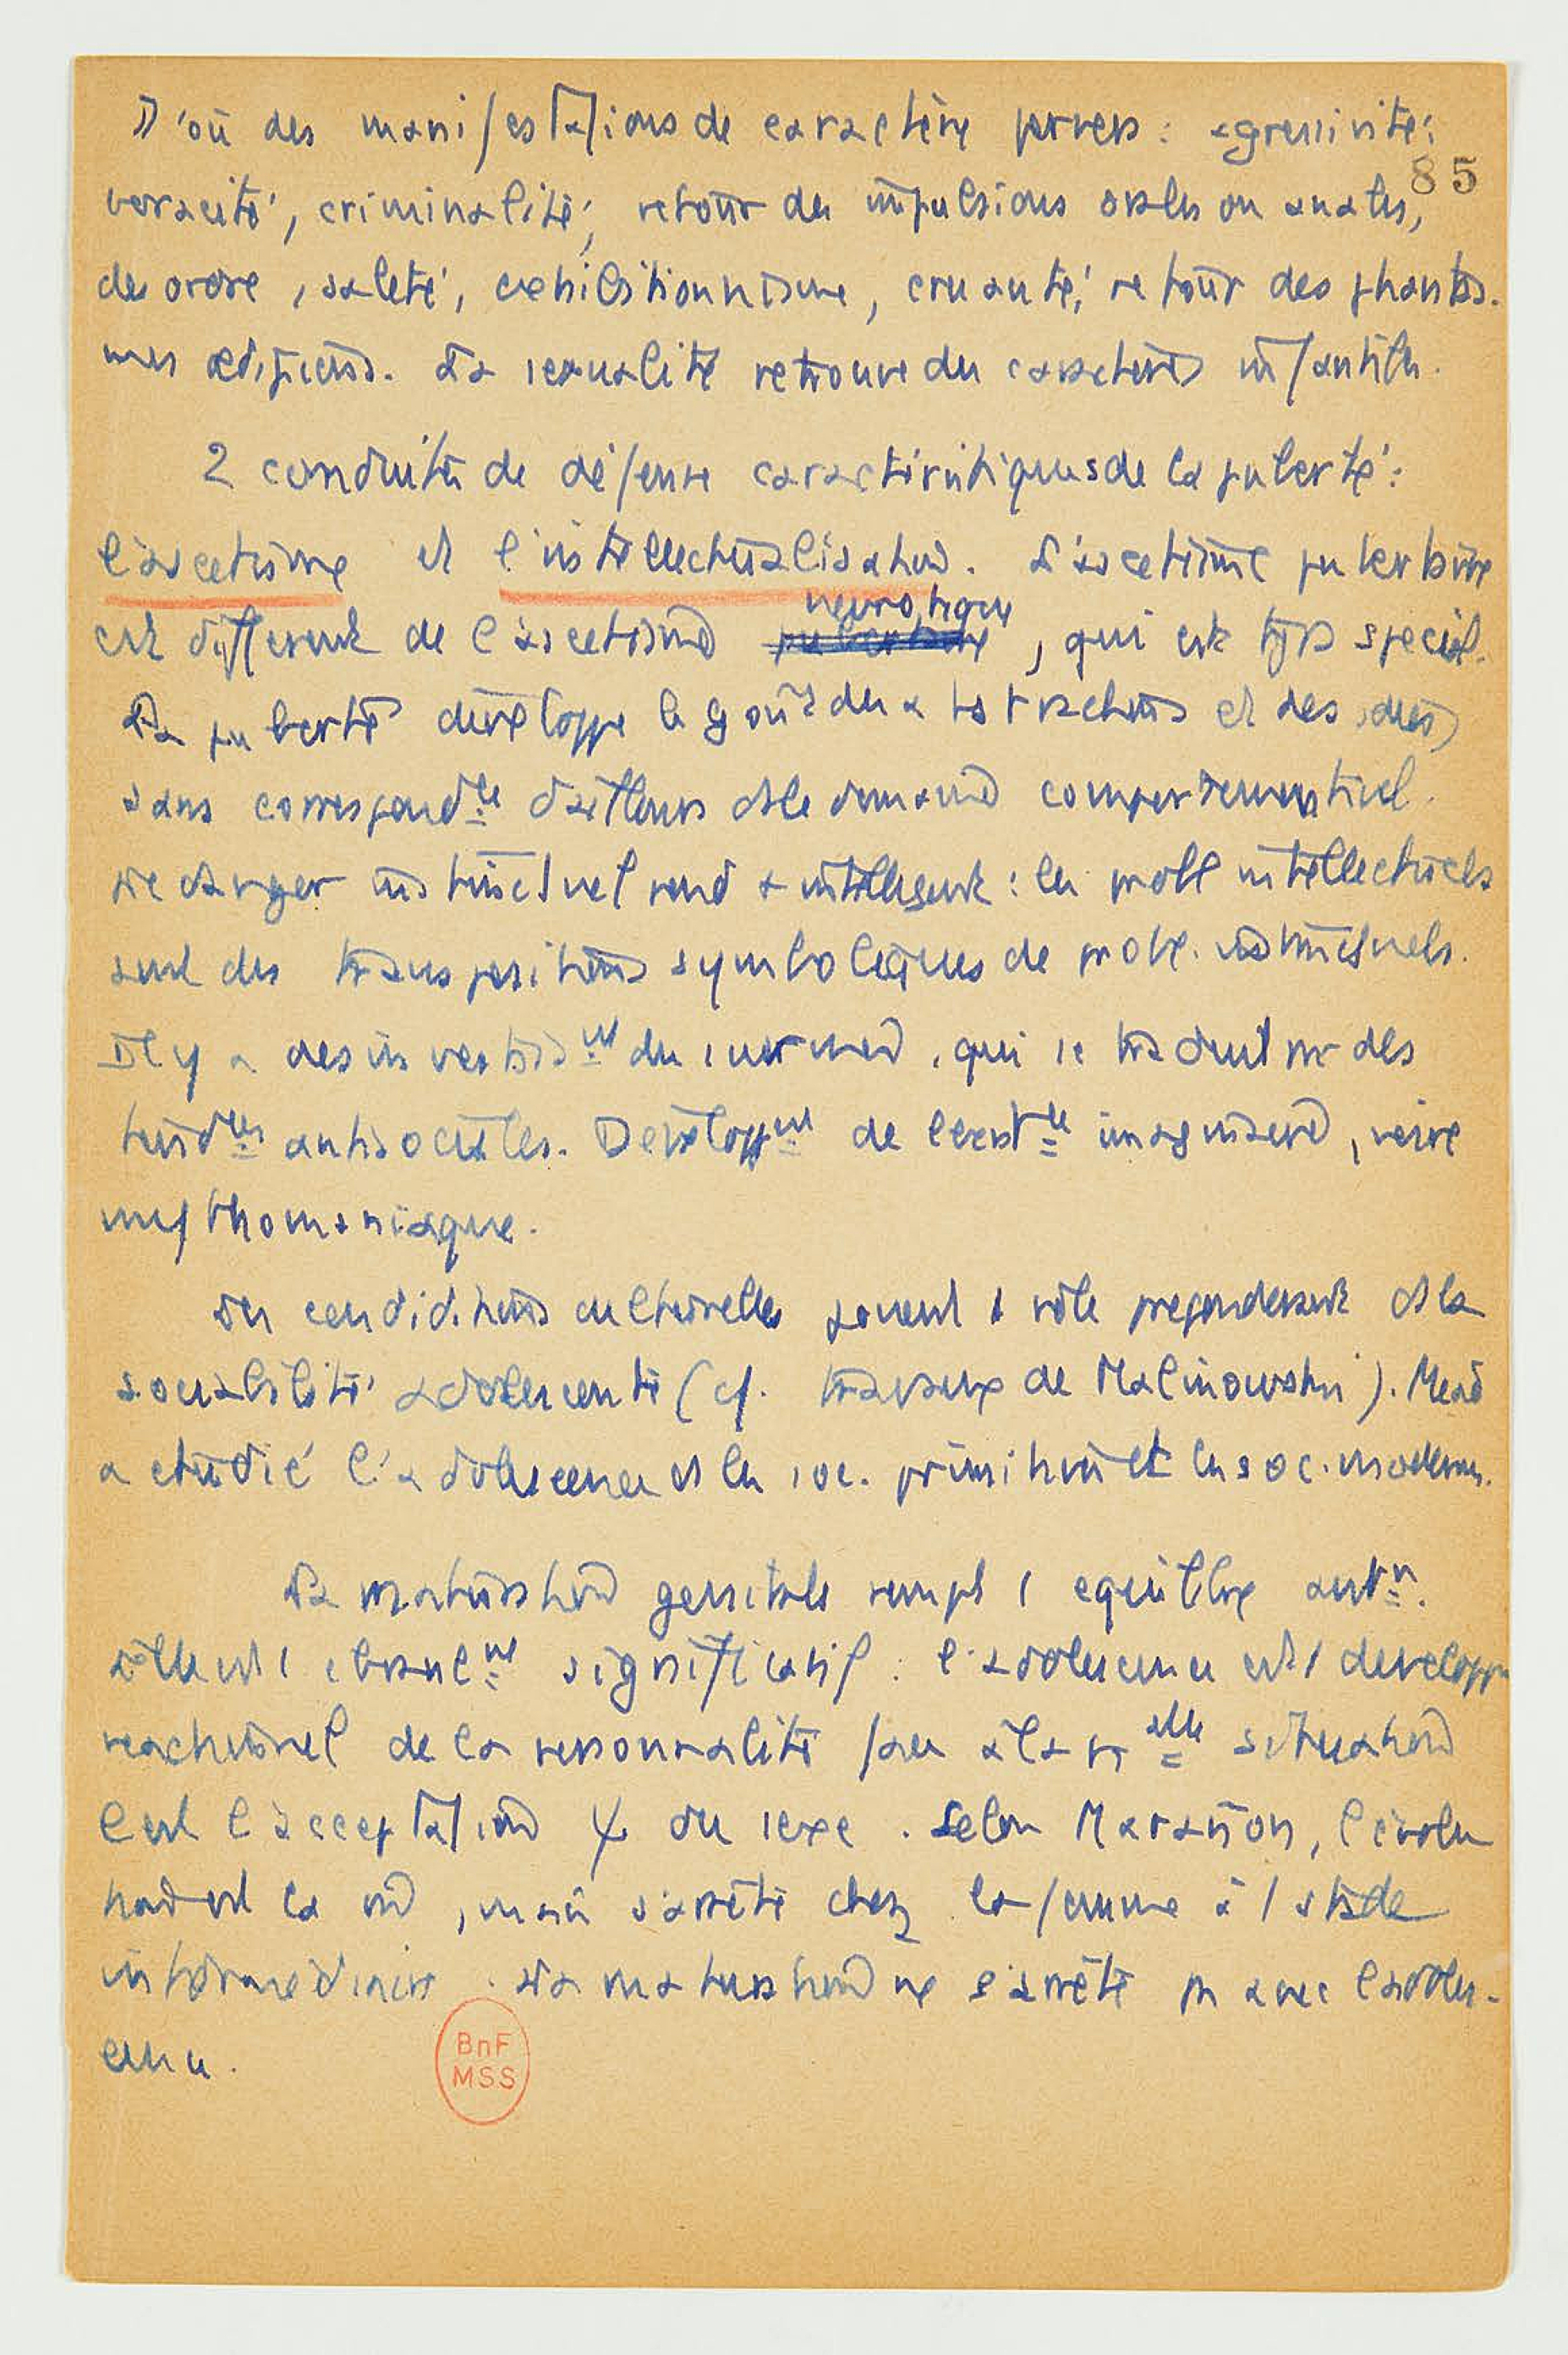 D'où des manifestations de caractère pervers : agressivité,
85
voracité, criminalité, retour des impulsions orales ou anales,
desordre, saleté, exhibitionnisme, cruauté, retour des phantas-
mes œdipiens. La sexualité retrouve des caractères infantiles.
2 conduites de défense caractéristiques de la puberté :
l'ascetisme et l'intellectualisation. L'ascetisme pubertaire
est different de l'ascetisme nevrotique, qui est type special.
La puberté développe le goût des abstractions et des idées,
sans correspondce d'ailleurs ds le domaine comportemental.
Le danger instinctuel rend + intelligent : les probl intellectuels
sont des transpositions symboliques de probl. instinctuels.
Il y a des investissnt du surmoi, qui se traduit par des
tendces antisociales. Developpnt de l'existce imaginaire, voire
mythomaniaque.
Les conditions culturelles jouent 1 rôle preponderant ds la
sociabilité adolescente (cf. travaux de Malinowski). Mead
a étudié l'adolescence ds les soc. primitives et les soc. modernes.
La maturation genitale rompt 1 equilibre antr.
elle est 1 ebranlnt significatif : l'adolescence est 1 developpt
reactionnel de la personnalité face à la situation
C'est l'acceptation ψ du sexe. Selon Marañon, l'évolu
tion est la m̂, mais s'arrête chez la femme à 1 stade
intermédiaire. La maturation ne s'arrête pas avec l'adoles-
cence.
BnF
MSS